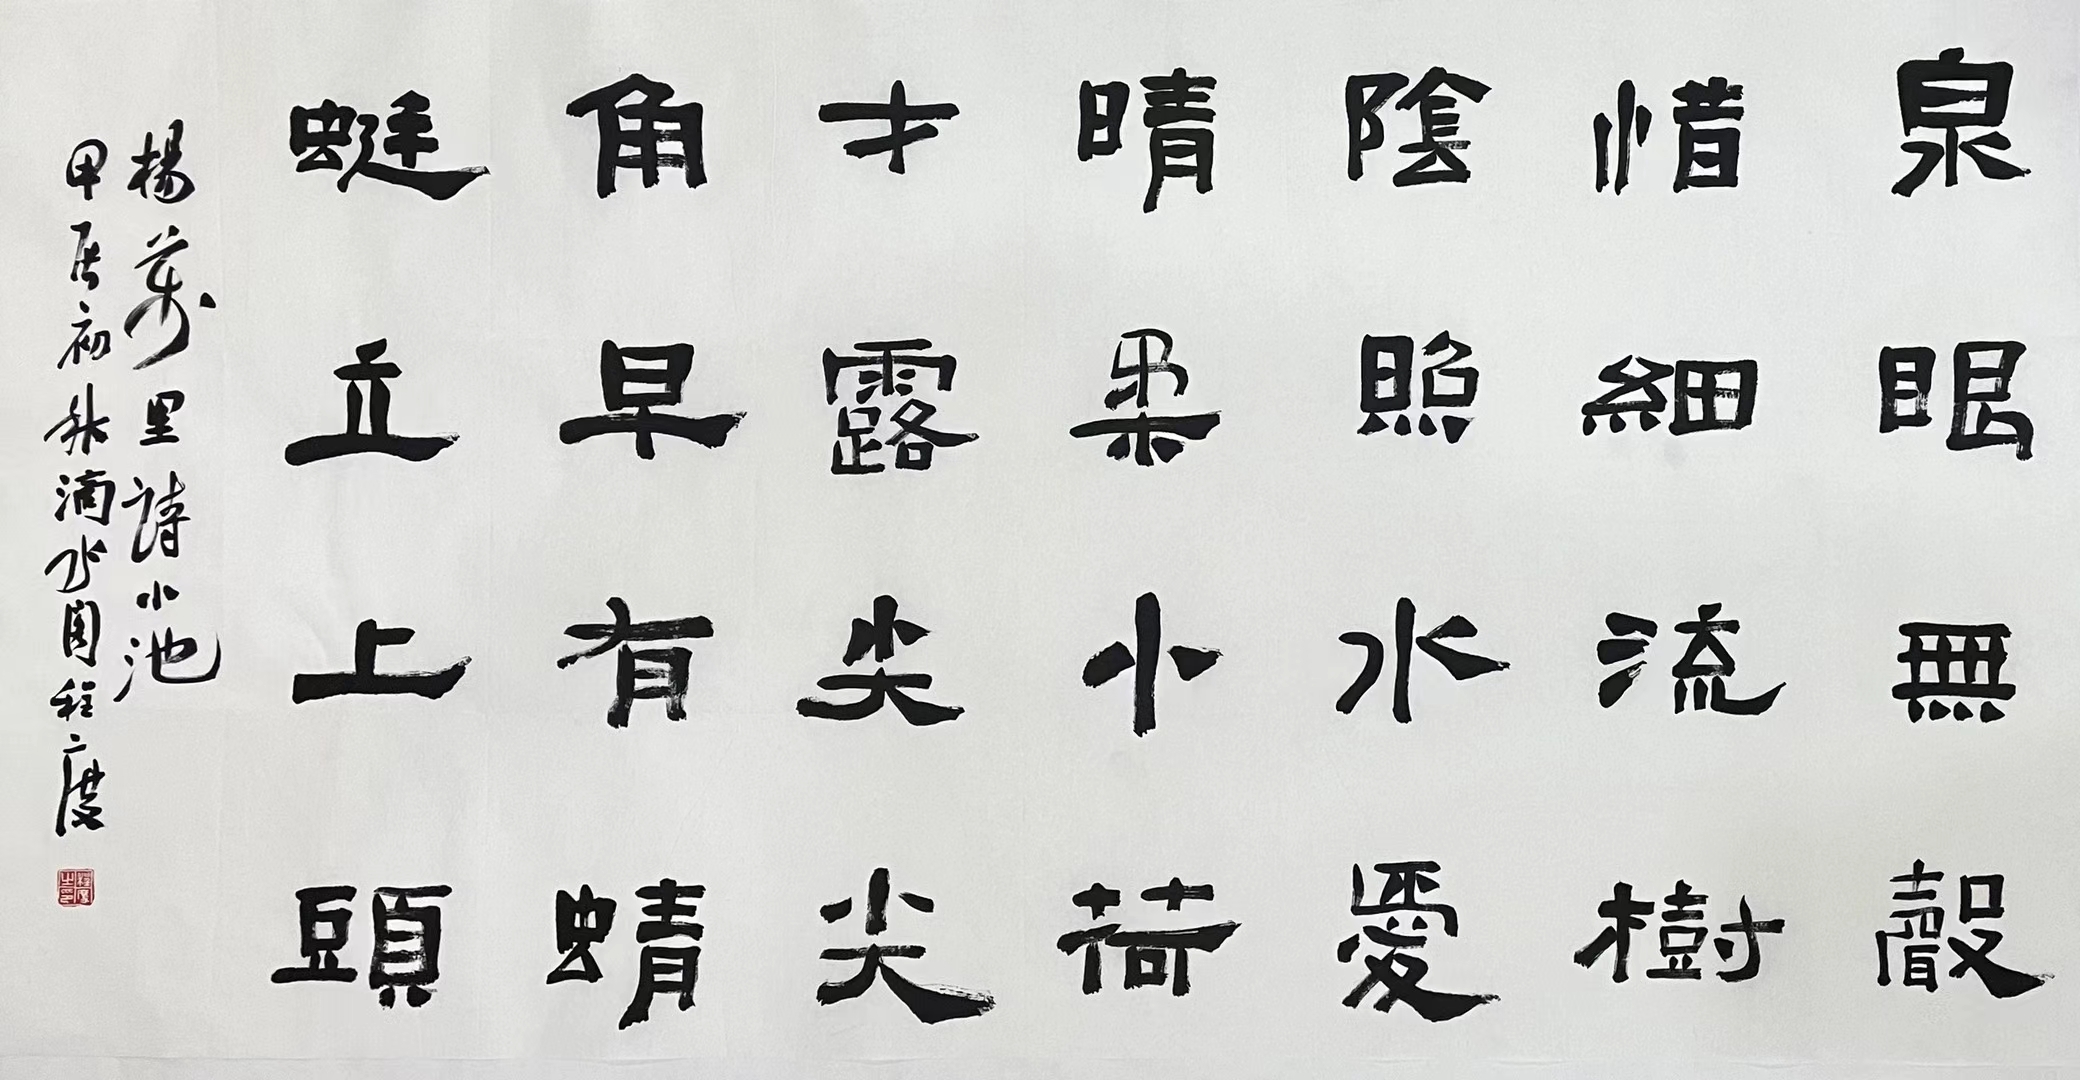 泉眼無聲
惜細流樹
陰照水愛
晴柔小荷
才露尖尖
角早有蜻
蜓立上頭
楊萬里詩小池
甲辰初秋滴水閣程度